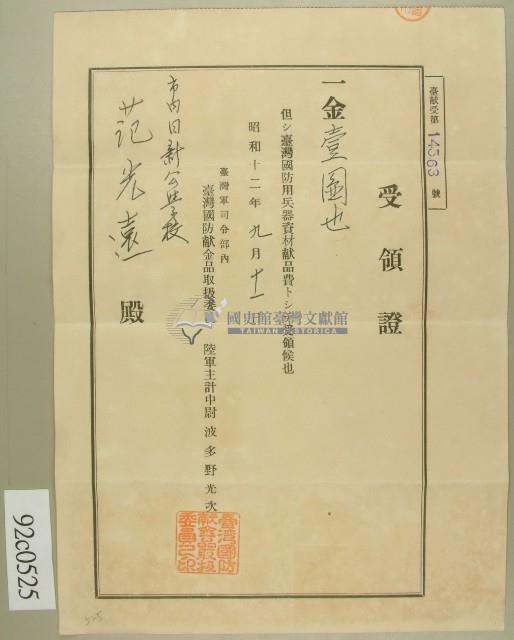 臺献受第14563號
受領證
一金壹圓也
但シ臺灣國防用兵器資材献品費トシ受領候也
昭和十二年九月十一日
臺灣軍司令部內
臺灣國防献金品取扱委 陸軍主計中尉 波多野光次
市內日新公學校
范光遠 殿
臺灣國防献金品取扱委員之印
國史館臺灣文獻館
TAIWAN HISTORICA
92c0525
525